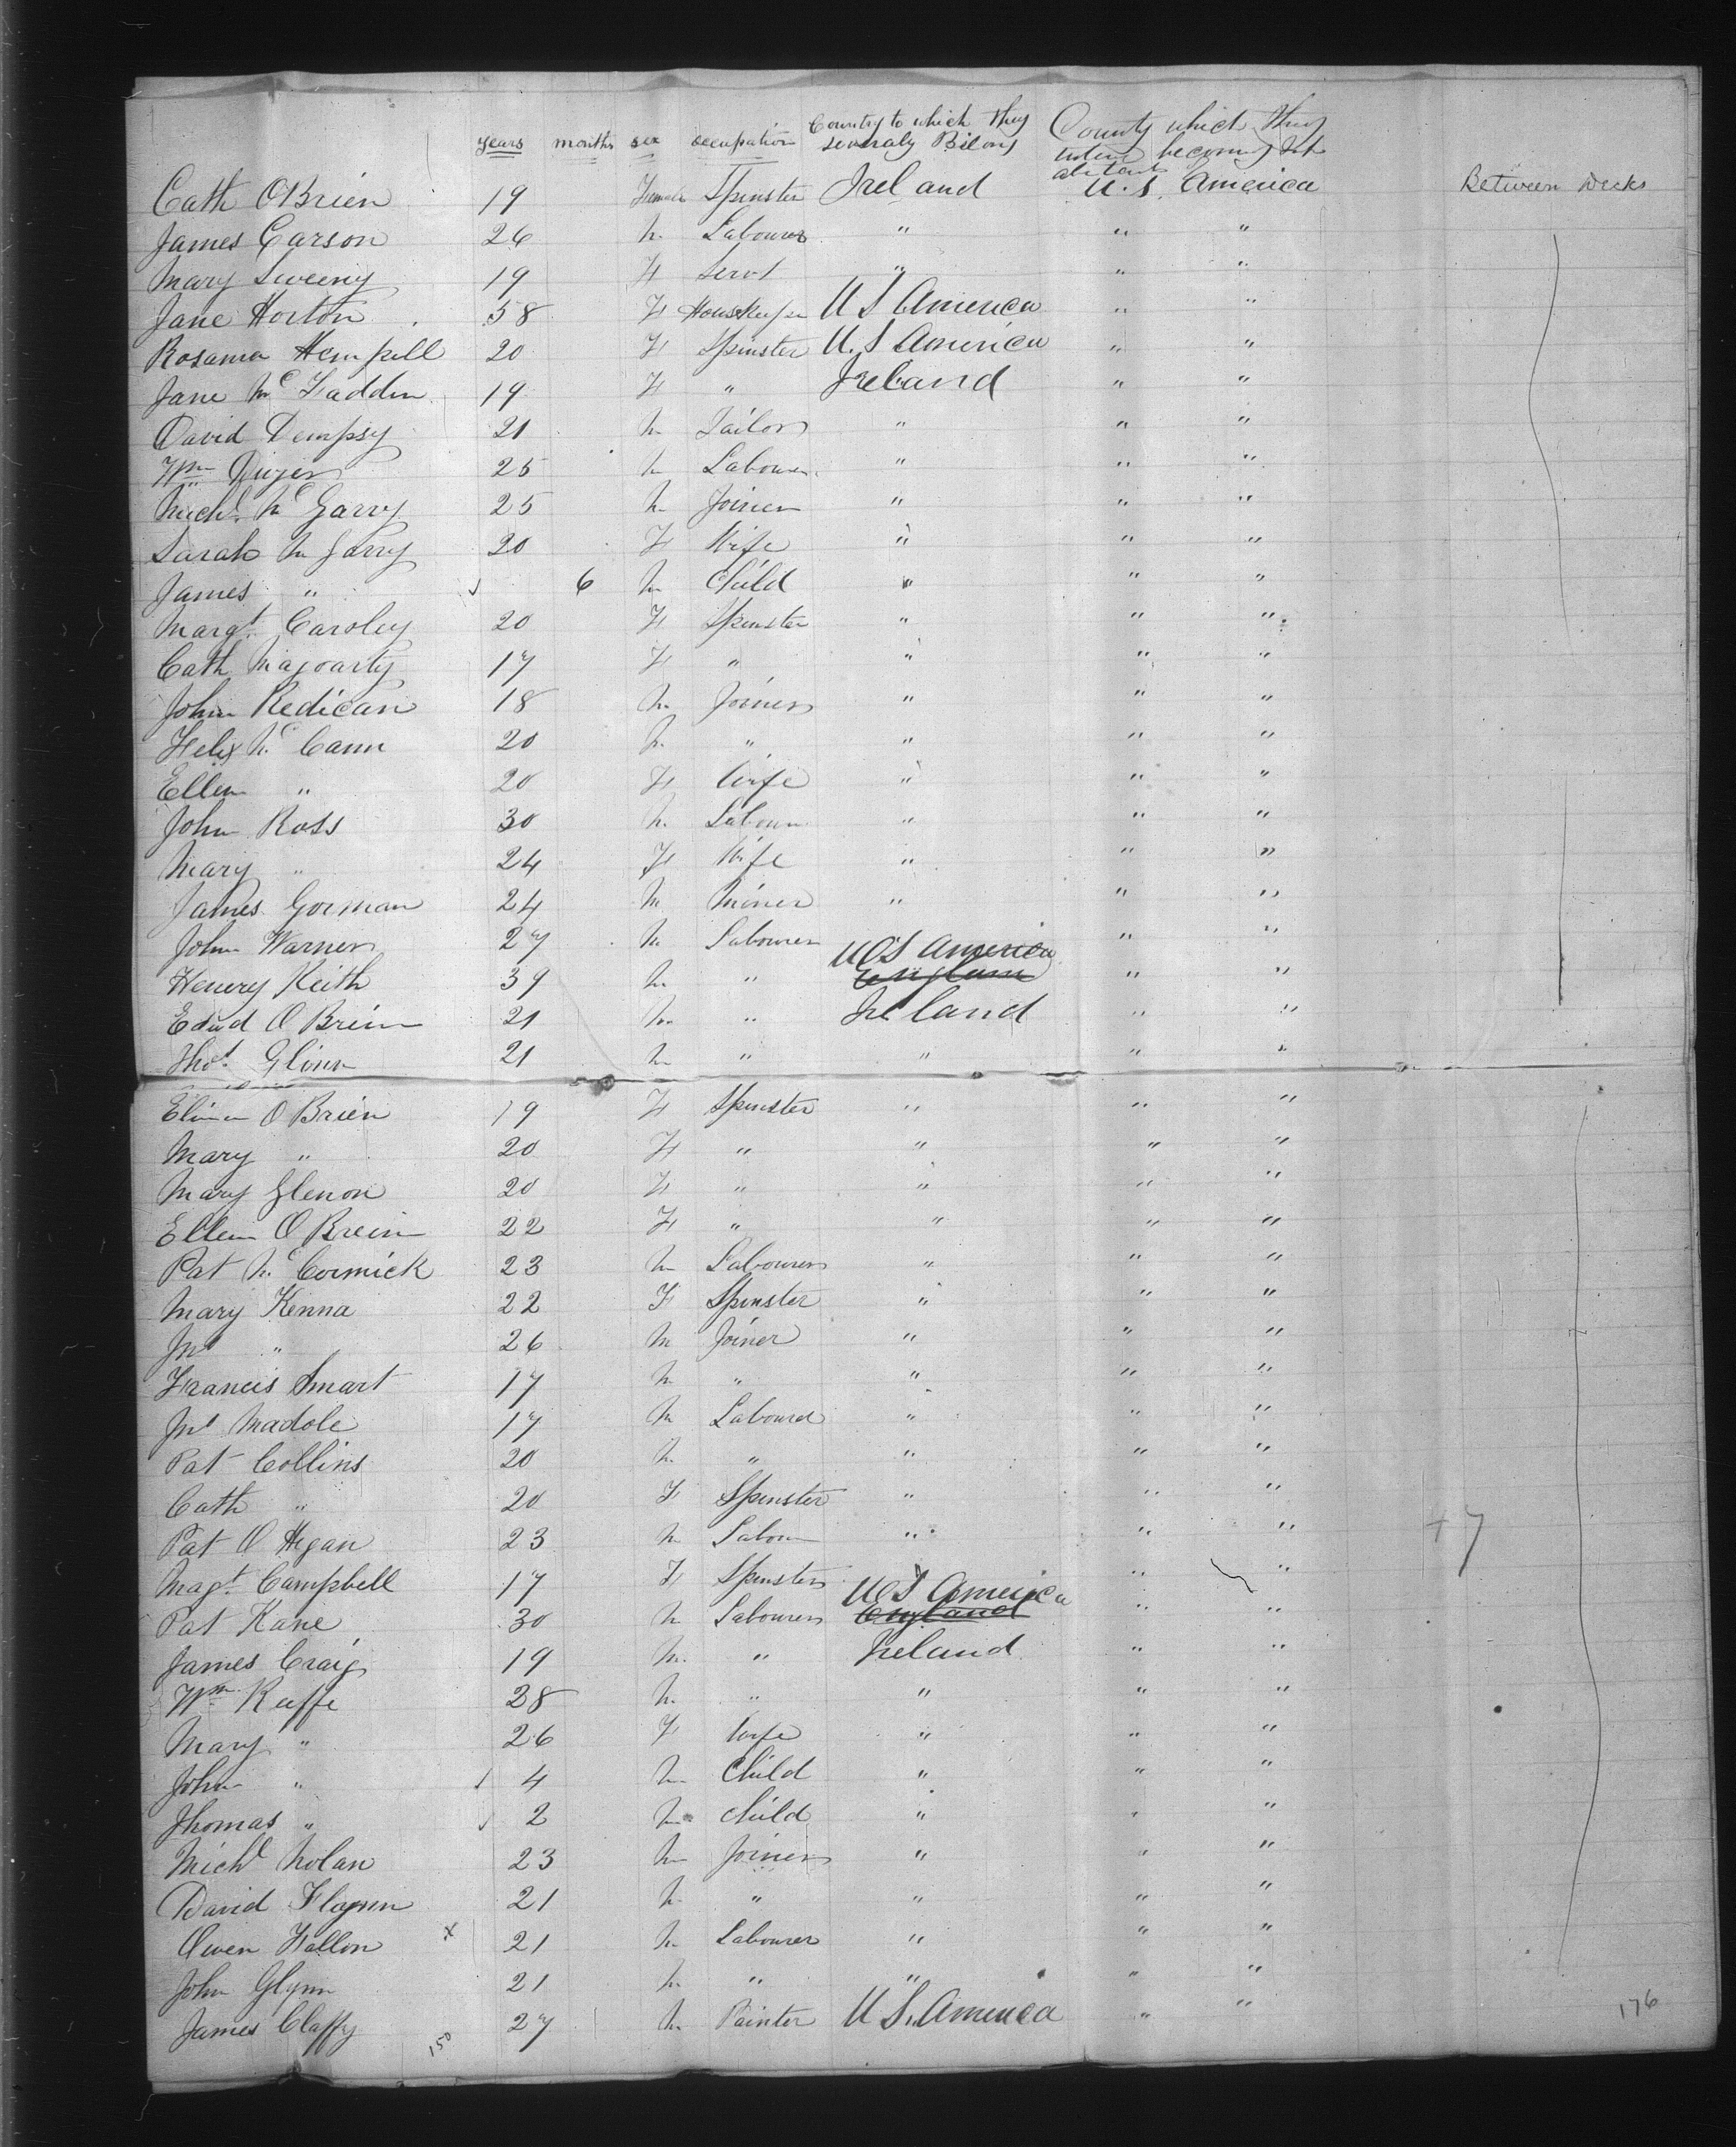 years months sex occupation Country to which they severaly Belong County which they intend becoming Inh abitants
Cath O'Brien 19 Female Spinster Ireland U.S. America Between Decks
James Carson 26 M Labourer " " "
Mary Sweeny 19 F Servt " " "
Jane Horton 58 F Housekeeper U S America " "
Rosanna Hempill 20 F Spinster U.S America " "
Jane Mc Fadden 19 F " Ireland " "
David Dempsy 21 M Tailor " " "
Wm Dwyer 25 M Labourer " " "
Michl Mc Garry 25 M Joiner " " "
Sarah Mc Garry 20 F Wife " " "
James " 6 M Child " " "
Margt Caroley 20 F Spinster " " "
Cath Magoarty 17 F " " " "
John Redican 18 M Joiner " " "
Felix Mc Cann 20 M " " " "
Ellen " 20 F Wife " " "
John Ross 30 M Labourer " " "
Mary " 24 F Wife " " "
James Gorman 24 M Miner " " "
John Warner 27 M Labourer " "
Henery Keith 39 M " U S America England " "
Edwd O Brein 21 M " Ireland " "
Thos Glinn 21 M " " " "
O Brien 19 F Spinster " " "
Mary " 20 F " " " "
Mary Glenon 20 F " " " "
Ellen O Brein 22 F " " " "
Pat Mc Cormick 23 M Labourer " " "
Mary Kenna 22 F Spinster " " "
Jno " 26 M Joiner " " "
Francis Smart 17 M " " " "
Jno Madole 17 M Labourer " " "
Pat Collins 20 M " " " "
Cath " 20 F Spinster " " "
Pat O Hegan 23 M Labour " " "
Magt Campbell 17 F Spinster " "
Pat Kane 30 M Labourer U S America England " "
James Craig 19 M " Ireland " "
Wm Keeffe 28 M " " " "
Mary " 26 F Wife " " "
John " 4 M Child " " "
Thomas " 2 M Child " " "
Michl Nolan 23 M Joiner " " "
David Flaynn 21 M " " " "
Owen Fallon x 21 M Labourer " " "
John Glynn 21 M " " " "
James Claffy 27 M Painter U S. America " "
150
176